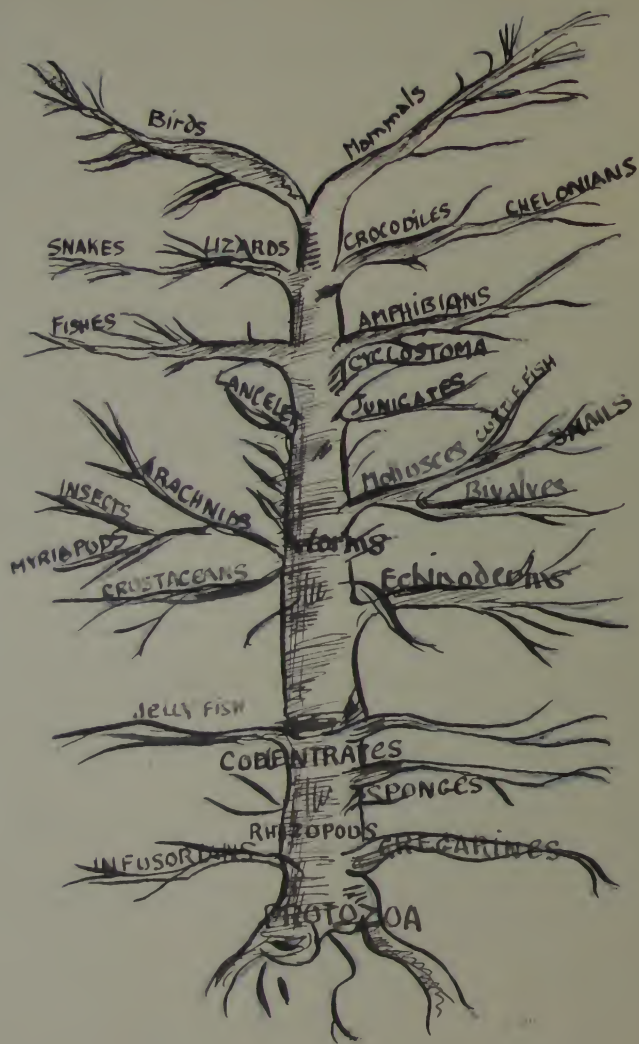 Birds
Mammals
SNAKES
LIZARDS
CROCODILES
CHELONIANS
FISHES
AMPHIBIANS
CYCLOSTOMA
ANCELET
TUNICATES
CUTTLEFISH
SNAILS
Molluscs
Bivalves
ARACHNIDS
INSECTS
MYRIAPODS
CRUSTACEANS
Worms
Echinoderms
Jelly FISH
COELENTRATES
SPONGES
RHIZOPODS
INFUSORIANS
GREGARINES
PROTOZOA